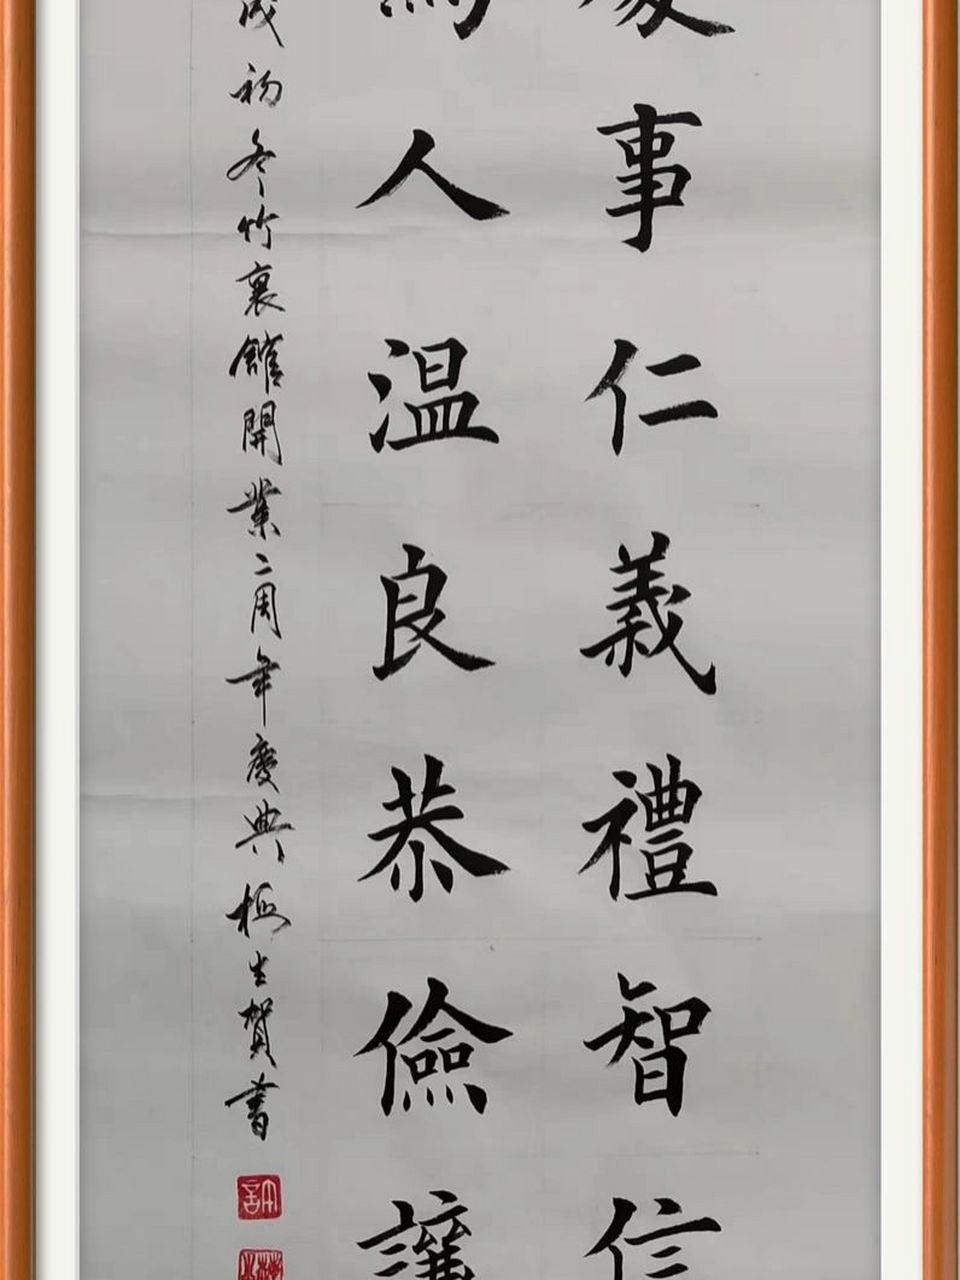 處事仁義禮智信
為人溫良恭儉讓
戌初冬竹裏館開業二周年慶典極生賀書